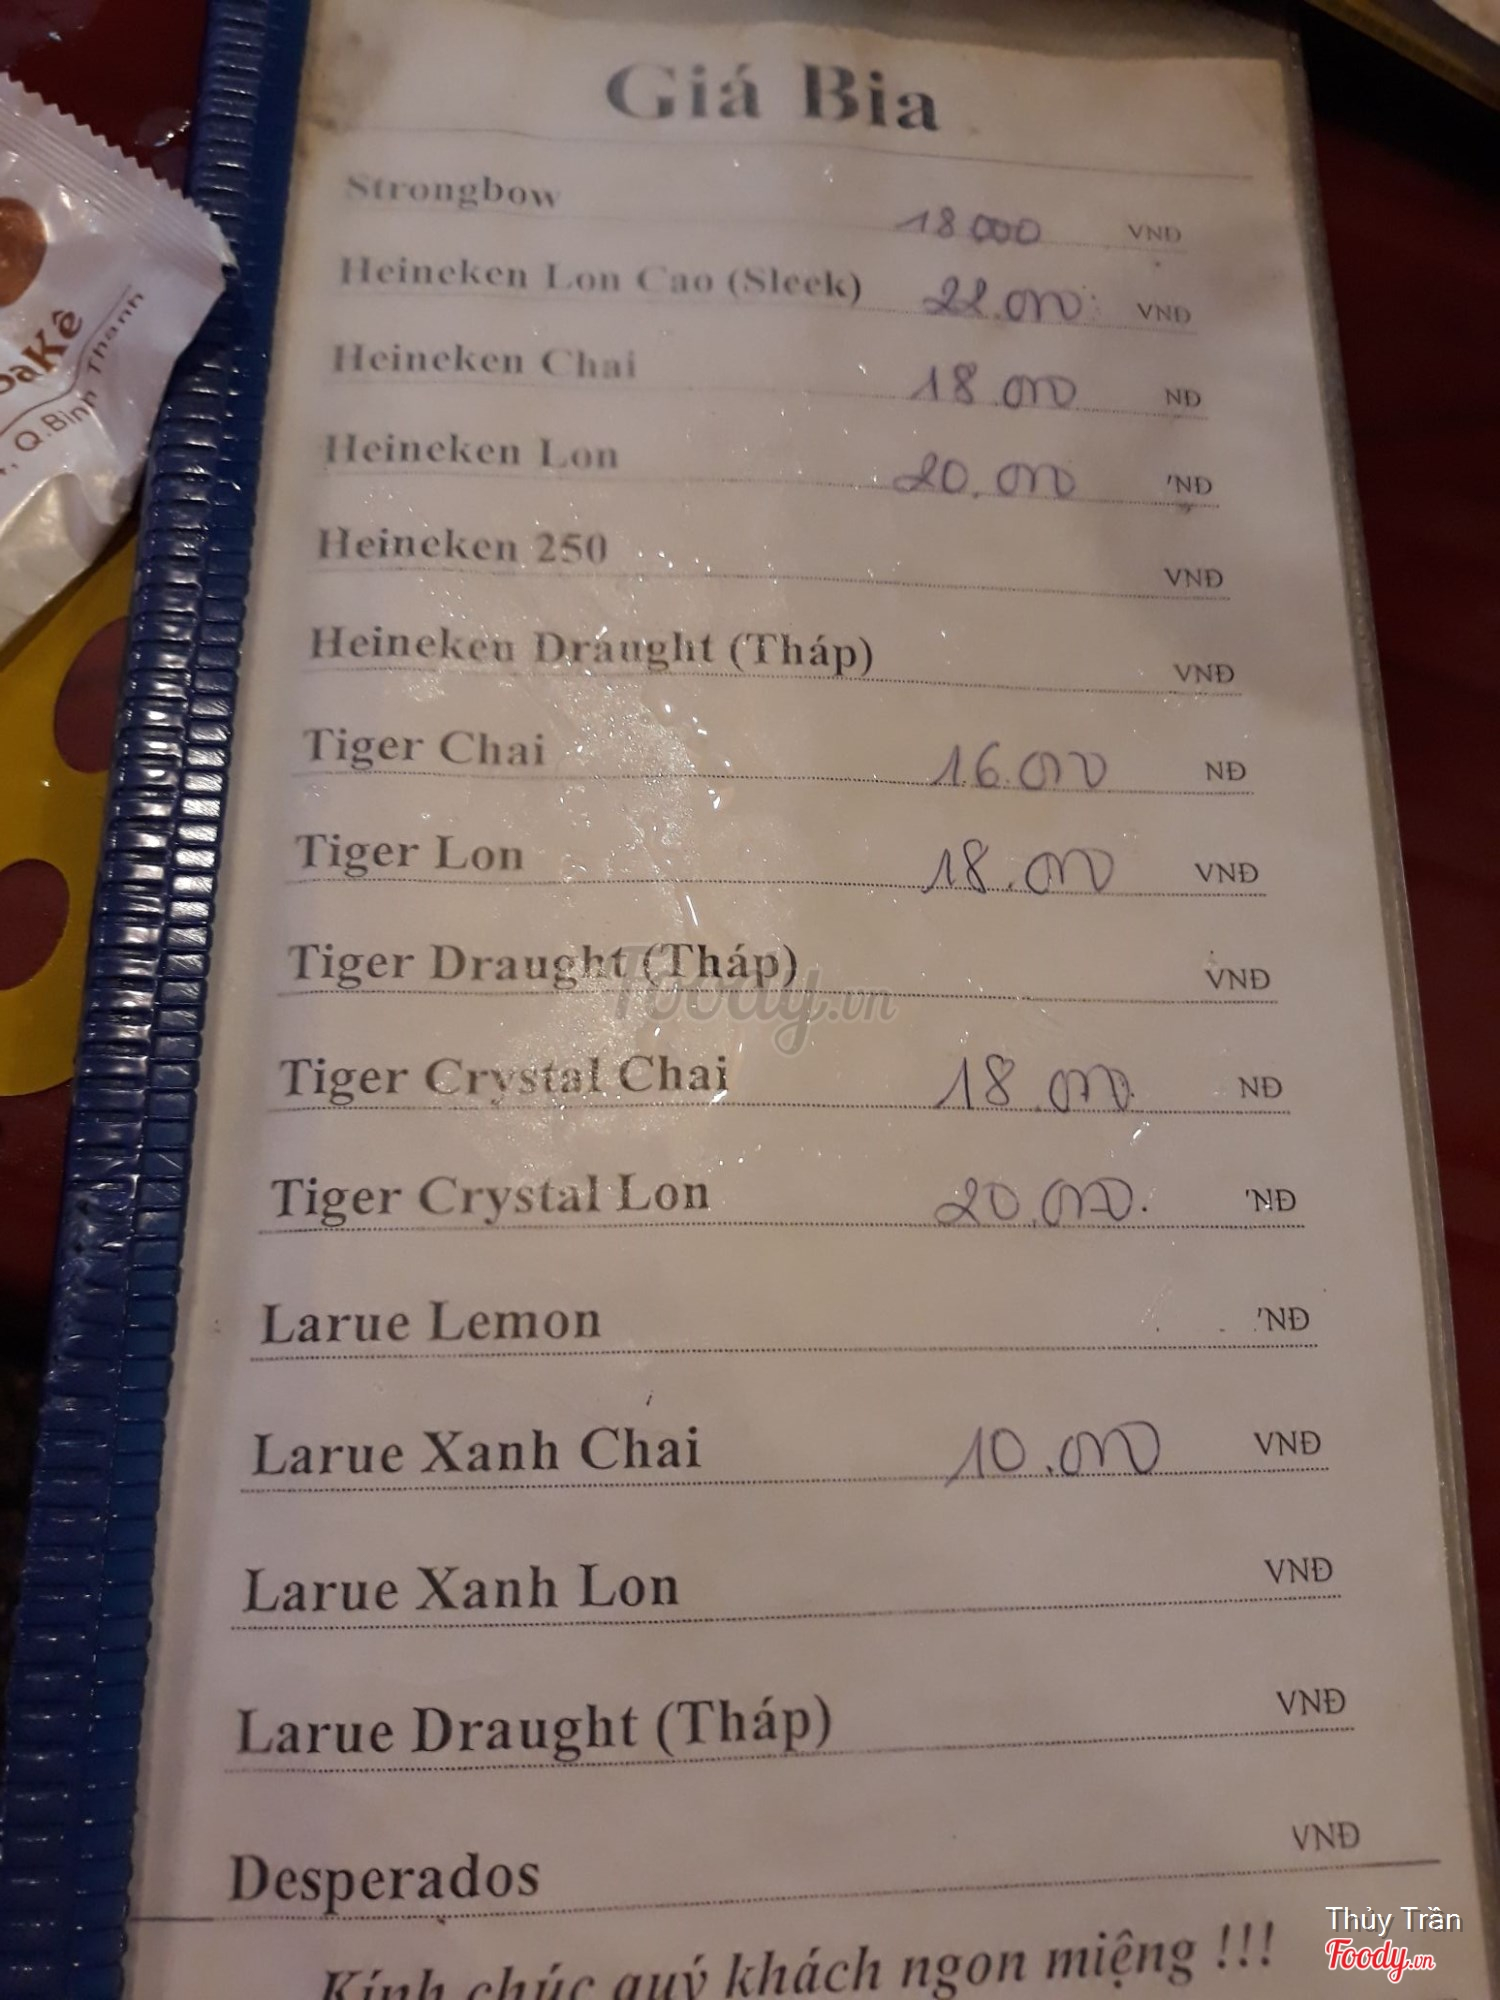 Giá Bia
Strongbow 18 000 VNĐ
Heineken Lon Cao (Sleek) 22.000 VNĐ
Heineken Chai 18.000 NĐ
Heineken Lon 20.000 'NĐ
Heineken 250 VNĐ
Heineken Draught (Tháp) VNĐ
Tiger Chai 16.000 NĐ
Tiger Lon 18.000 VNĐ
Tiger Draught (Tháp) VNĐ
Foody.vn
Tiger Crystal Chai 18.000 NĐ
Tiger Crystal Lon 20.000. 'NĐ
Larue Lemon 'NĐ
Larue Xanh Chai 10.000 VNĐ
Larue Xanh Lon VNĐ
Larue Draught (Tháp) VNĐ
Desperados VNĐ
Kính chúc quý khách ngon miệng !!!
Q.Bình Thạnh
Thủy Trần
Foody.vn